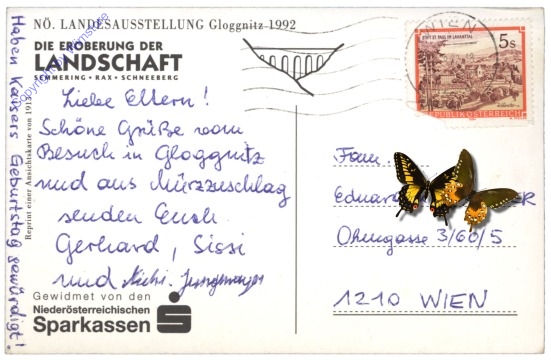 NÖ. LANDESAUSSTELLUNG Gloggnitz 1992
DIE EROBERUNG DER
LANDSCHAFT
SEMMERING • RAX • SCHNEEBERG
Liebe Eltern!
Schöne Grüße vom
Besuch in Gloggnitz
und aus Mürzzuschlag
senden Euch
Gerhard, Sissi
und
Gewidmet von den
Niederösterreichischen
Sparkassen
Haben Kaisers Geburtstag gewürdigt!
Reprint einer Ansichtskarte von 191
WIEN
5s
STIFT ST. PAUL IM LAVANTTAL
REPUBLIK ÖSTERREICH
Fam.
Eduard ER
Ohmgasse 3/60/5
1210 WIEN